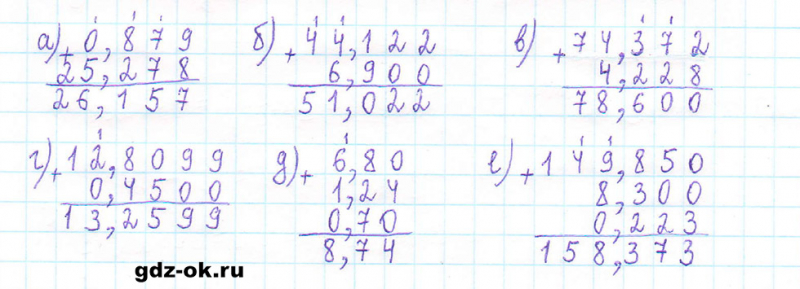 а) + 0,879
25,278
26,157
б) + 44,122
6,900
51,022
в) + 74,372
4,228
78,600
г) + 12,8099
0,4500
13,2599
д) + 6,80
1,24
0,70
8,74
е) + 149,850
8,300
0,223
158,373
gdz-ok.ru